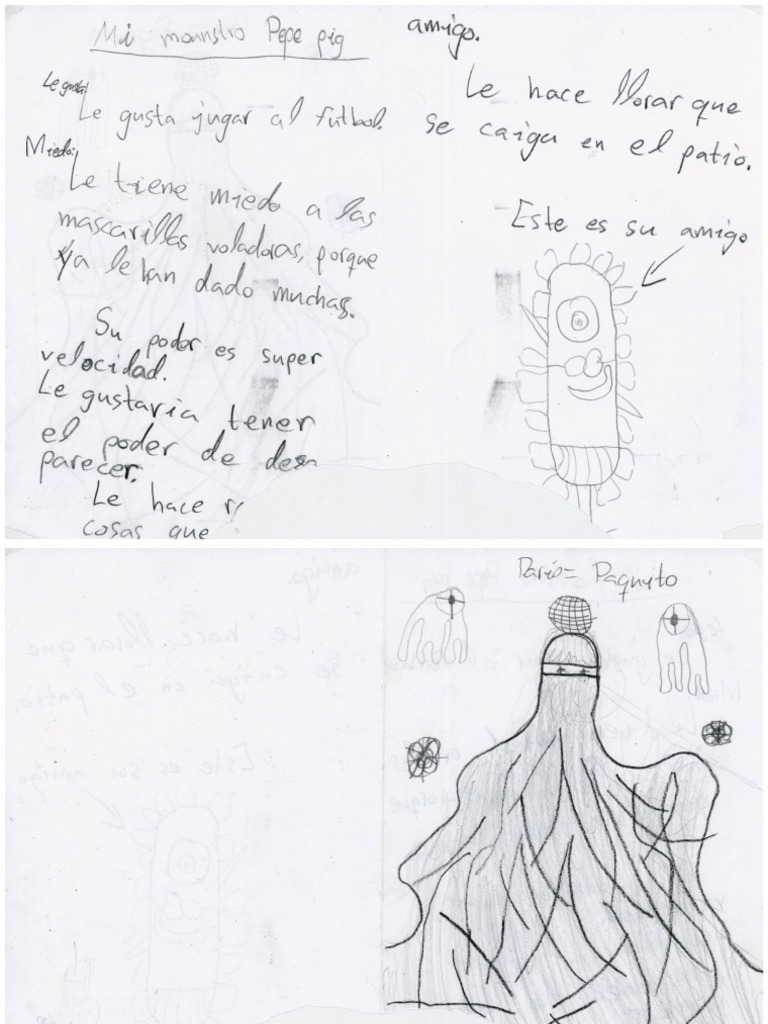 Mi mounstro Pepe pig
Le gusta:
Le gusta jugar al futbol.
Miedo:
Le tiene miedo a las
mascarillas voladoras, porque
ya le han dado muchas.
Su poder es super
velocidad.
Le gustaria tener
el poder de desa
parecer.
Le hace
cosas que
amigo.
Le hace llorar que
se caiga en el patio.
Este es su amigo
Dario= Paquito